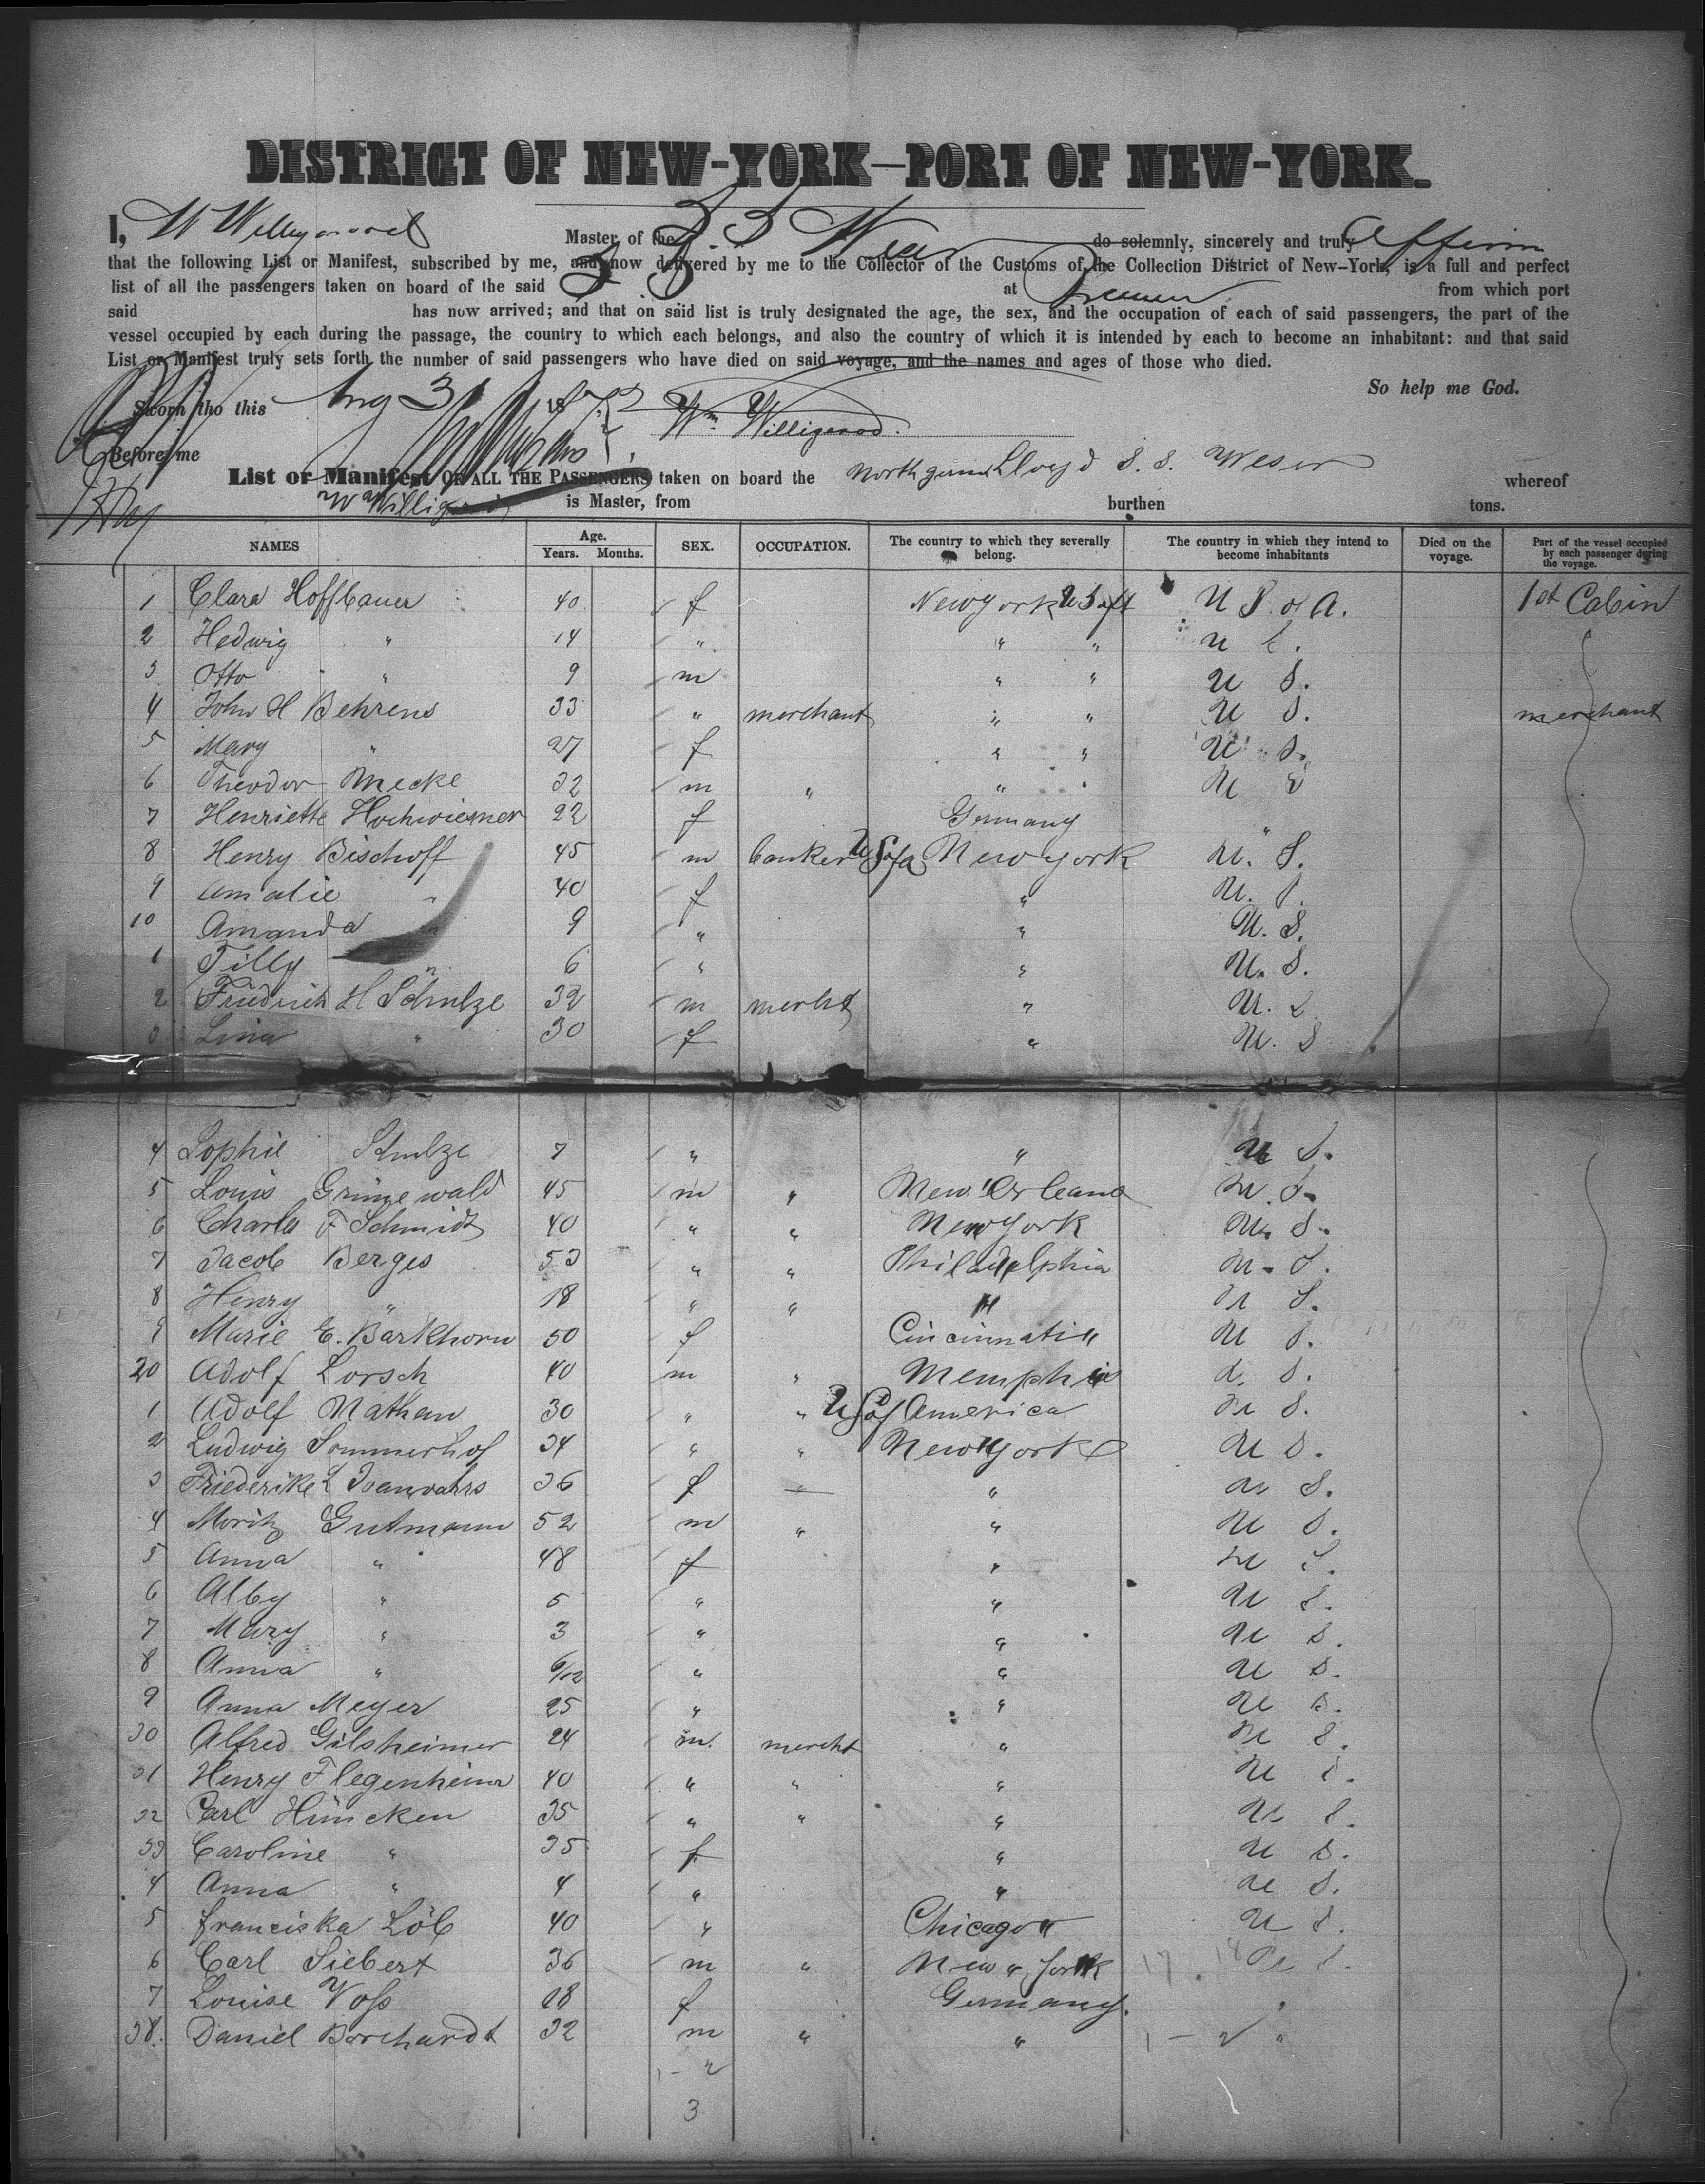 DISTRICT OF NEW-YORK—PORT OF NEW-YORK.
I, W Willigerod Master of the S.S Weser do solemnly, sincerely and truly affirm
that the following List or Manifest, subscribed by me, and now delivered by me to the Collector of the Customs of the Collection District of New-York, is a full and perfect
list of all the passengers taken on board of the said S S at Bremen from which port
said has now arrived; and that on said list is truly designated the age, the sex, and the occupation of each of said passengers, the part of the
vessel occupied by each during the passage, the country to which each belongs, and also the country of which it is intended by each to become an inhabitant: and that said
List or Manifest truly sets forth the number of said passengers who have died on said voyage, and the names and ages of those who died.
So help me God.
Sworn tho this Aug 31 1872 Wm Willigerod.
Before me
List or Manifest OF ALL THE PASSENGERS taken on board the North german Lloyd S. S. Weser whereof
W Willigerod is Master, from burthen tons.
NAMES Age. Years. Months. SEX. OCCUPATION. The country to which they severally belong. The country in which they intend to become inhabitants Died on the voyage. Part of the vessel occupied by each passenger during the voyage.
1 Clara Hoffbauer 40 f New york U S of A U S of A. 1st Cabin
2 Hedwig " 14 " " " U S.
3 Otto " 9 m " " U S.
4 John H Behrens 33 " merchant " " U S. merchant
5 Mary " 27 f " " U S.
6 Theodor Mecke 32 m " " " U S
7 Henriette Hochwiesner 22 f Germany "
8 Henry Bischoff 45 m banker U S of a New york U. S.
9 Amalie " 40 f " U. S.
10 Amanda " 9 " " U. S.
1 Tilly " 6 " " U. S.
2 Friedrich H Schulze 32 m mercht " U. S
3 Lina " 30 f " U. S
4 Sophie Schulze 7 " " U S.
5 Louis Grünewald 45 m " New Orleans U. S.
6 Charles F Schmidt 40 " " New York U. S.
7 Jacob Berges 53 " " Philadelphia U. S.
8 Henry " 18 " " " U S.
9 Marie E. Barkhorn 50 f Cincinnati " U S.
20 Adolf Lorsch 40 m " Memphis U. S.
1 Adolf Nathan 30 " " U S of America U S.
2 Ludwig Sommerhof 34 " " New York U S.
3 Friederike L 36 f " " U S.
4 Moritz Gutmann 52 m " " U S.
5 Anna " 48 f " U S.
6 Alby " 5 " " U S.
7 Mary " 3 " " U S.
8 Anna " 6/12 " " U S.
9 Anna Meyer 25 " " U S.
30 Alfred Gilsheimer 24 m. mercht " U S.
31 Henry Flegenheimer 40 " " " U S.
32 Carl Hüncken 35 " " " U S.
33 Caroline " 35 f " U S.
4 Anna " 4 " " U S.
5 Franciska Löb 40 " Chicago " U S.
6 Carl Siebert 36 m " New York 17 18 U S.
7 Louise Voss 18 f Germany. "
38. Daniel Borchardt 32 m " " 1 - 2 "
1 - 2
3